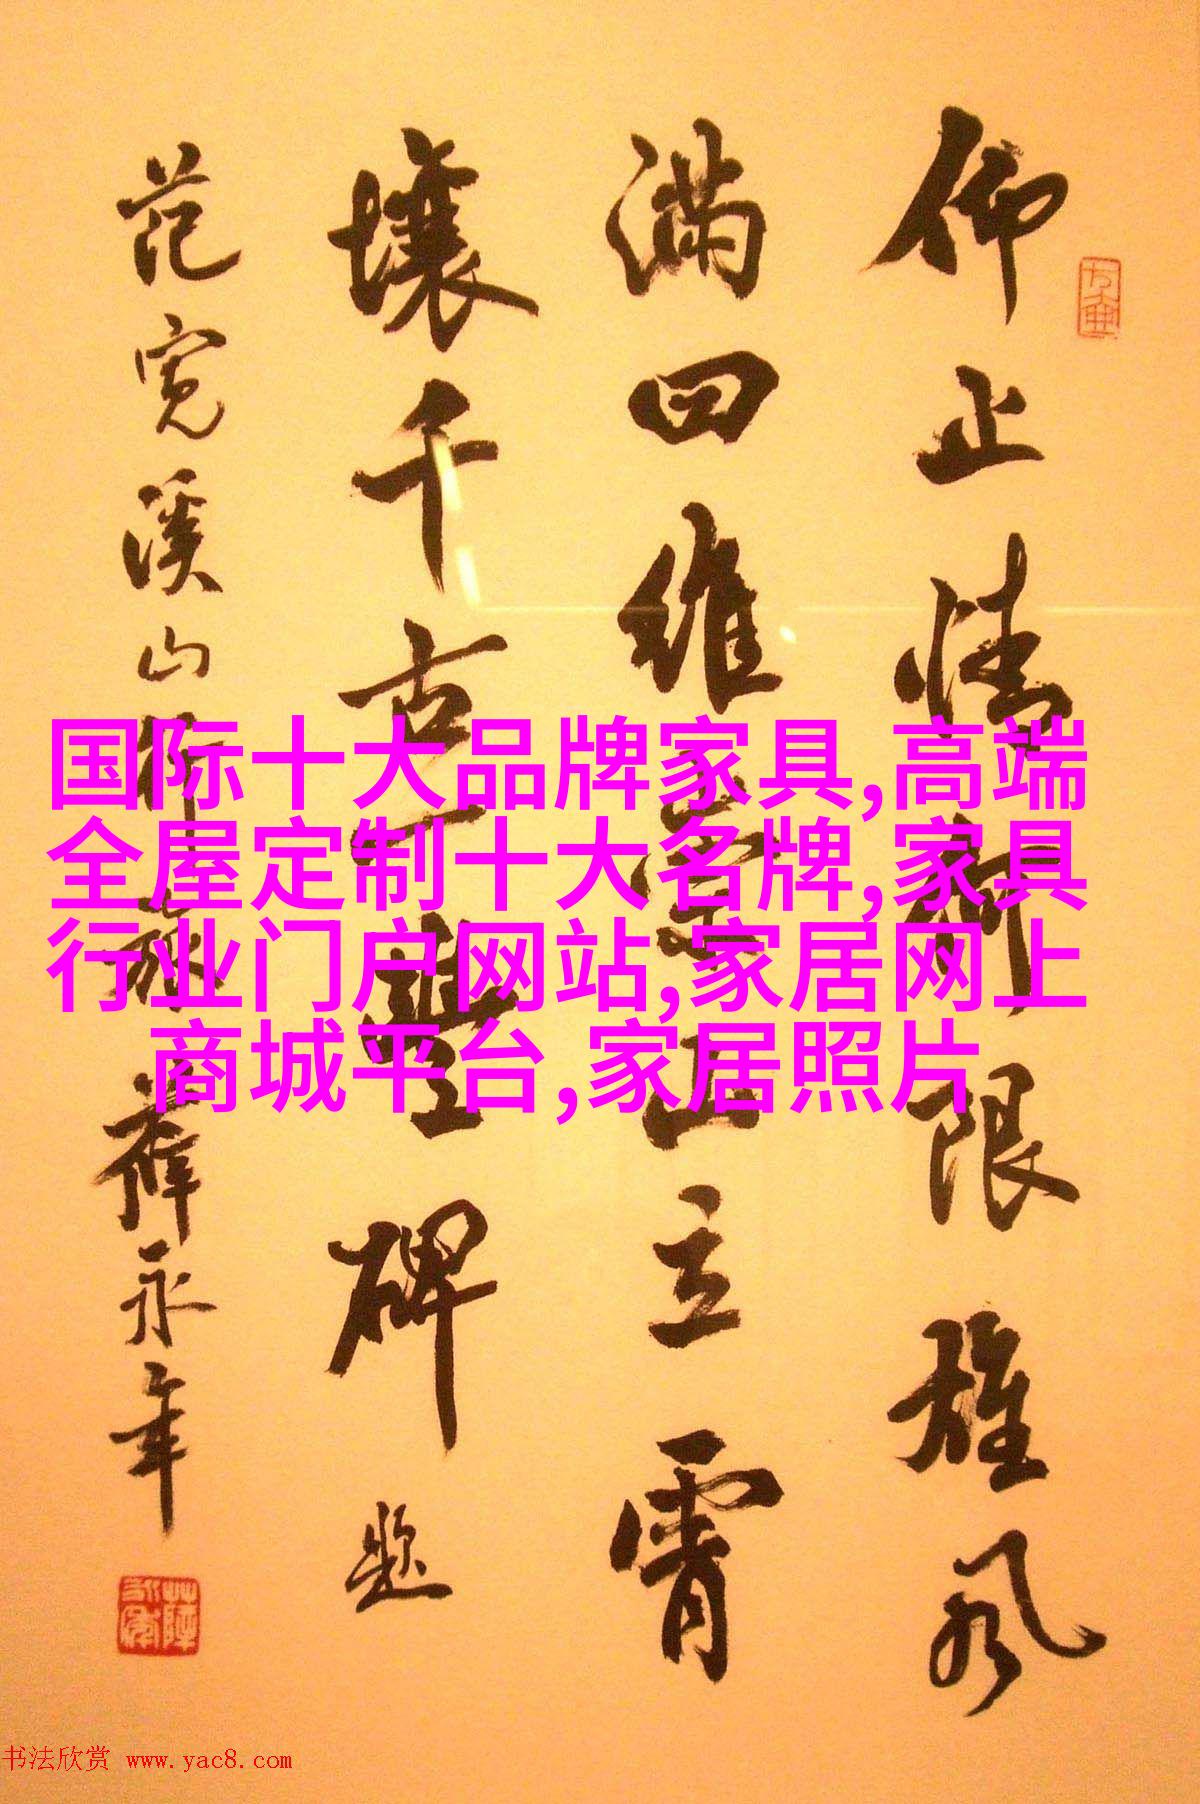 仰止情何限雄风
满四维崇山立霄
壤千古一豐碑 题
范宽溪山行旅 薛永年
国际十大品牌家具,高端
全屋定制十大名牌,家具
行业门户网站,家居网上
商城平台,家居照片
书法欣赏 www.yac8.com